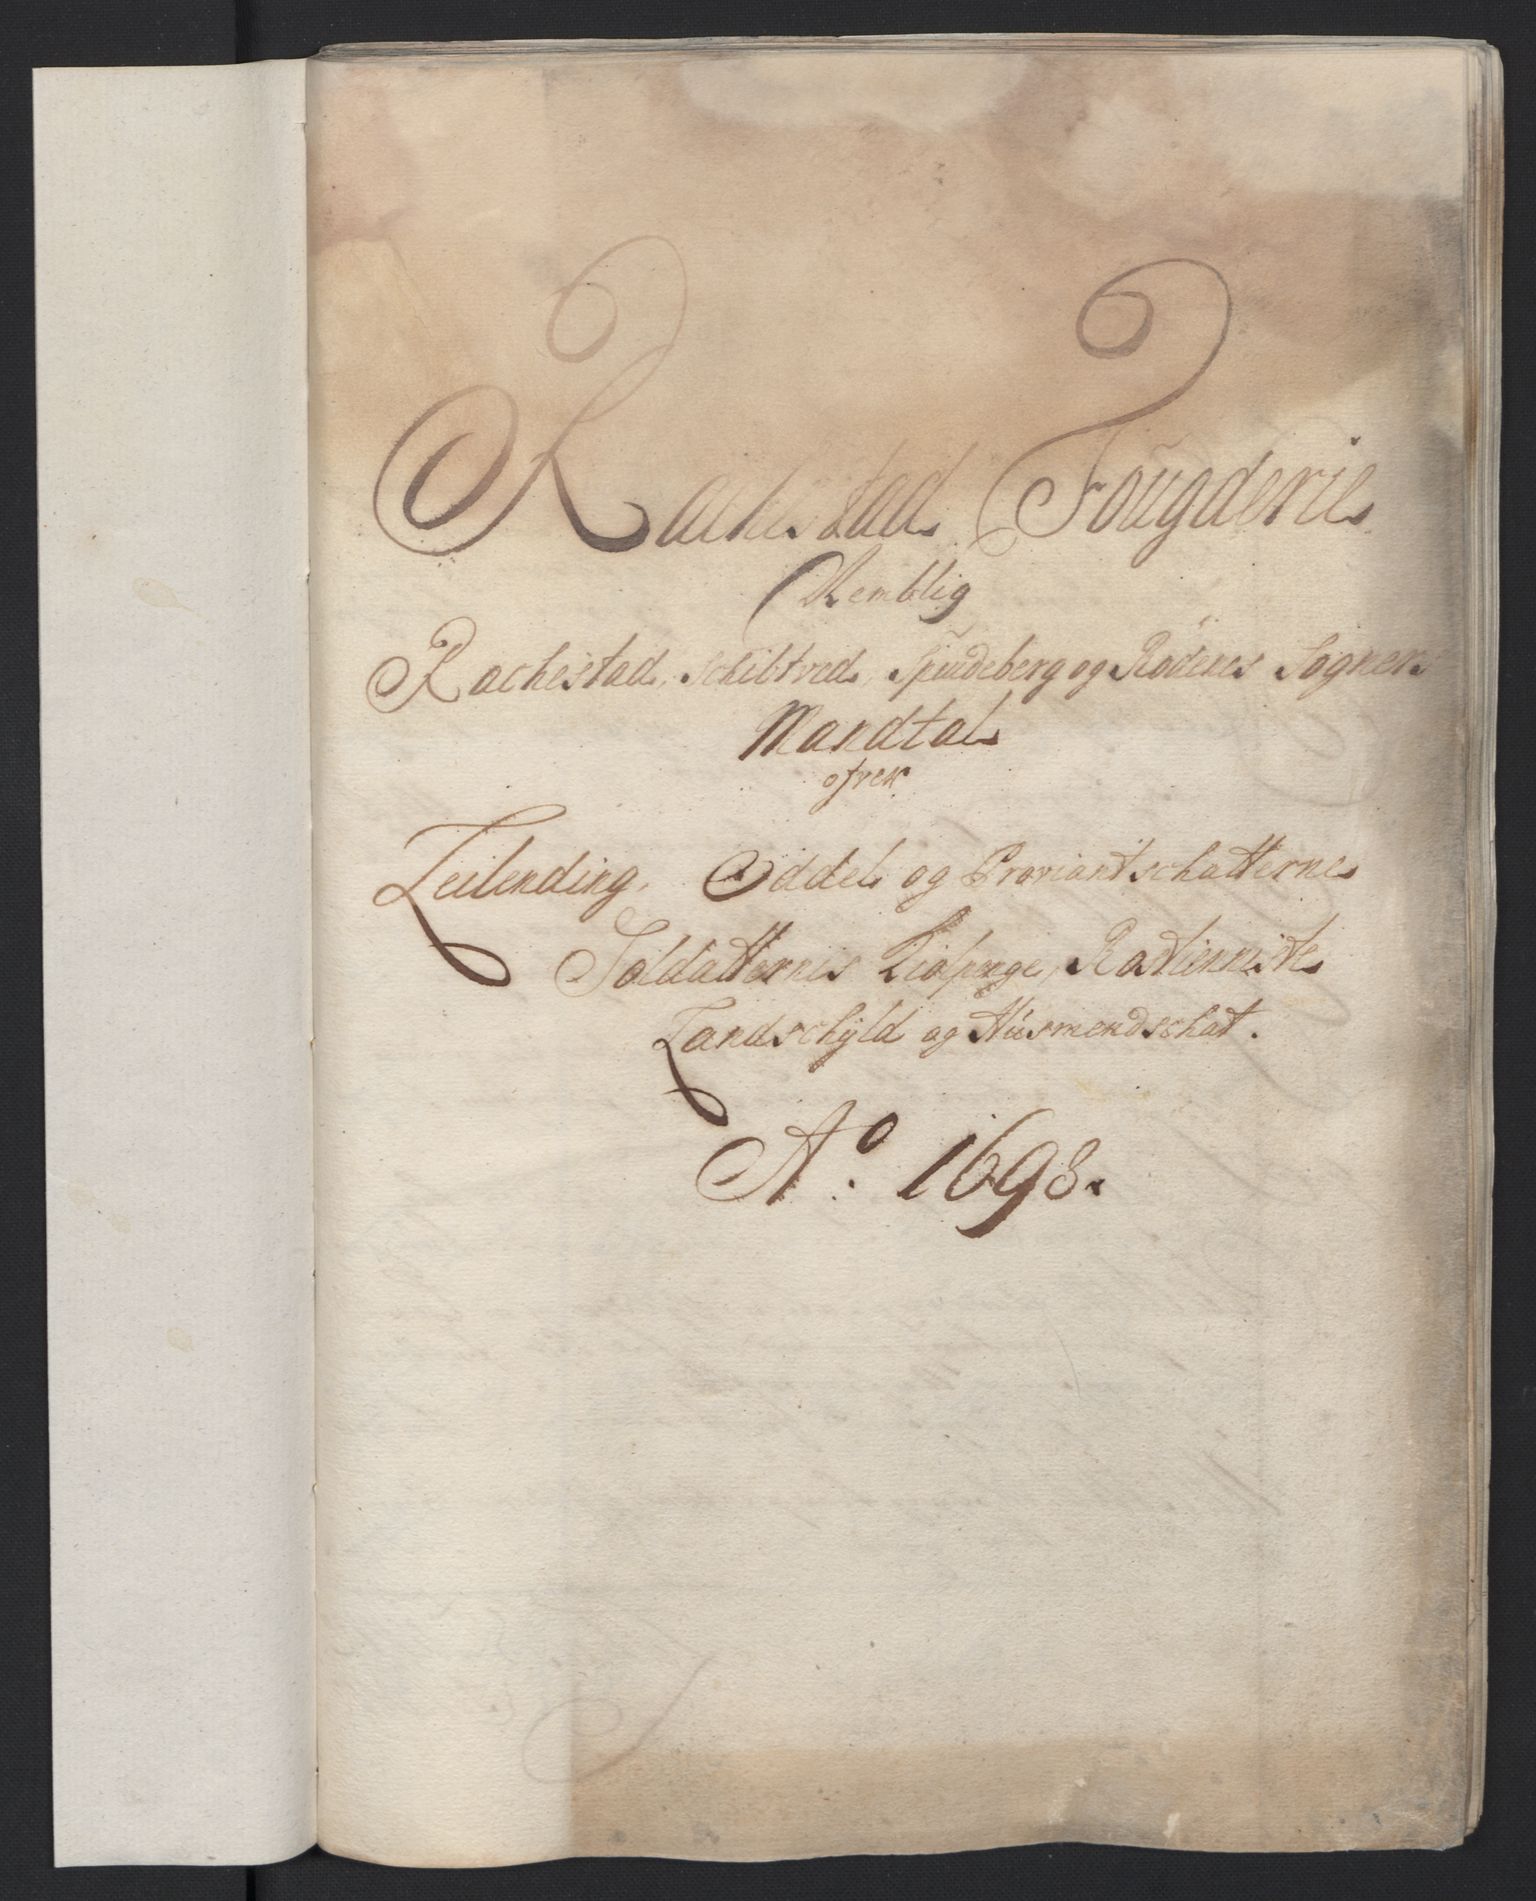 Rachestad Fougderie
Nemblig
Rachestad, Schibtved, Spudeberg og Rödenes Sogners
Mandtal
ofver
Leilending, Oddel og Proviantschatterne
Soldatternis Kiolpenge, Rostienniste
Landschyld og Husmendschat.
Aº. 1698.